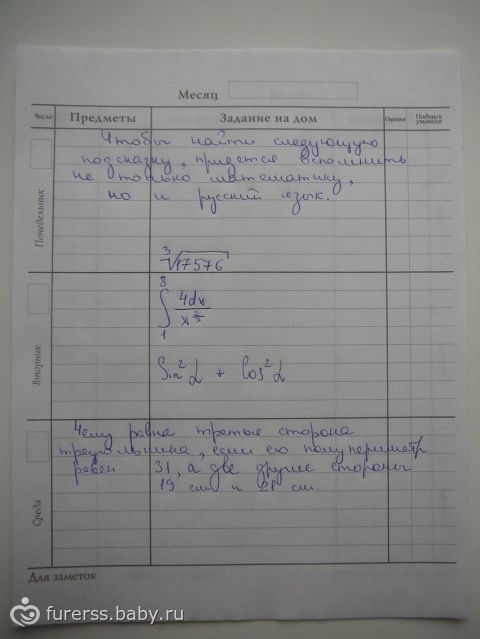 Месяц
Число Предметы Задание на дом Оценка Подпись учителя
Понедельник
Чтобы найти следующую
подсказку, придется вспомнить
не только математику,
но и русский язык.
∛17576
Вторник
∫₁⁸ 4dx/x^(2/3)
Sin²α + Cos²α
Среда
Чему равна третья сторона
треугольника, если его полупериметр
равен 31, а две другие стороны
19 см и 21 см.
Для заметок
furerss.baby.ru